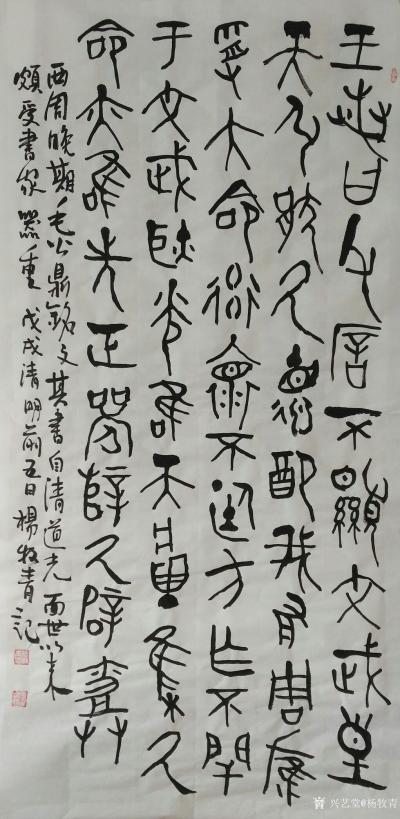 王若曰父㕂不顯文武皇
天弘猒氒德配我有周膺
受大命率褱不廷方亡不閈
于文武耿光隹天集氒
命亦隹先正辥氒辟
西周晚期毛公鼎銘文其書自清道光面世以來
頗受書家器重 戊戌清明前五日楊牧青記
兴艺堂@杨牧青